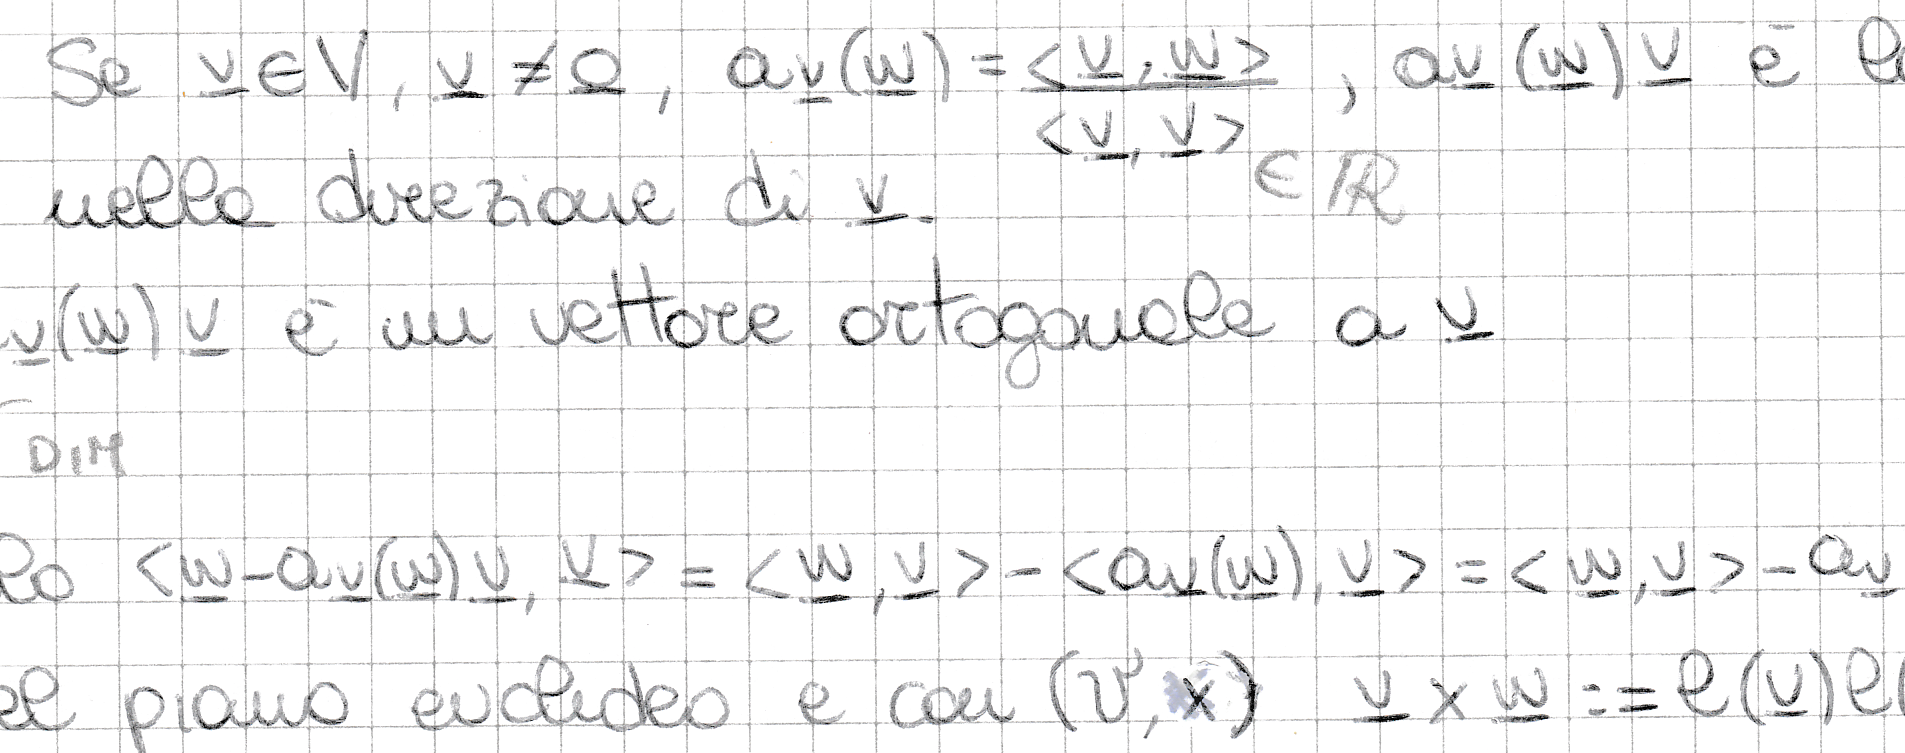 Se v ∈ V, v ≠ 0, av(w) = <v, w> / <v, v> ∈ ℝ, av(w) v è
nella direzione di v.
v(w) v è un vettore ortogonale a v
DIM
<w - av(w) v, v> = <w, v> - <av(w), v> = <w, v> - av
piano euclideo e con (V, x) v x w := l(v) l(